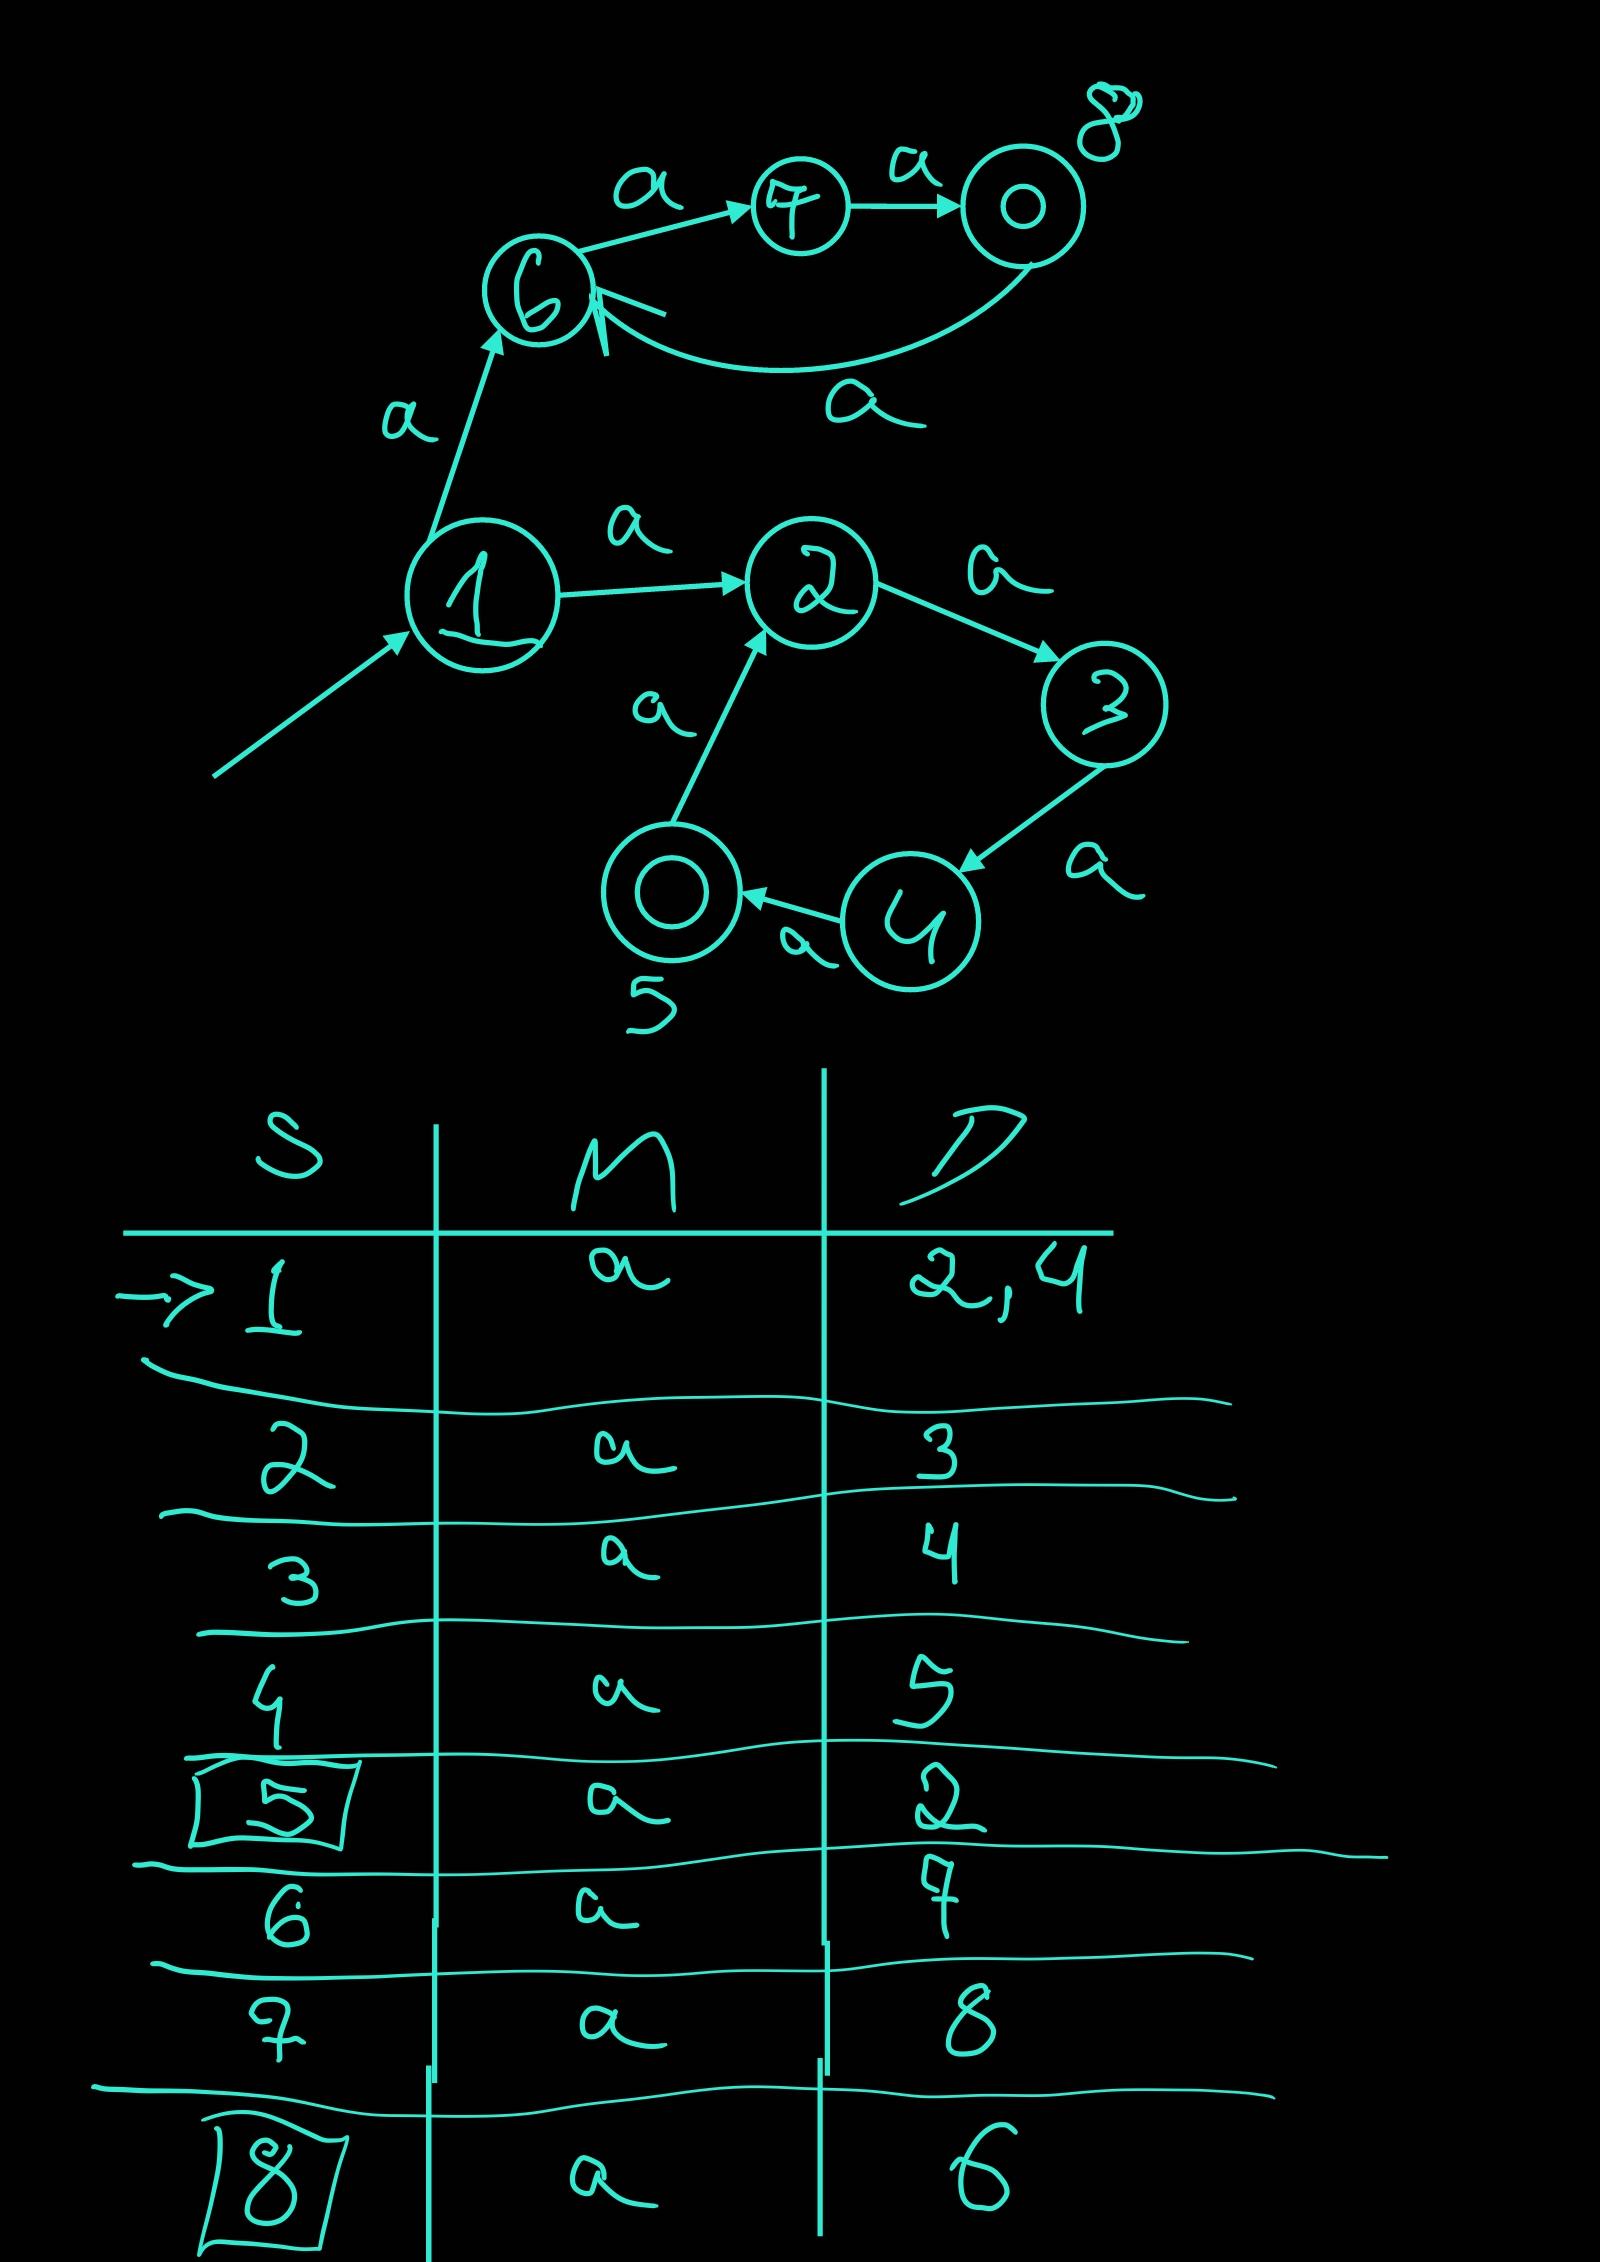 8
a
a
7
6
a
a
a
1
2
a
3
a
a
4
a
5
S M D
→ 1 a 2,4
2 a 3
3 a 4
4 a 5
5 a 2
6 a 7
7 a 8
8 a 6